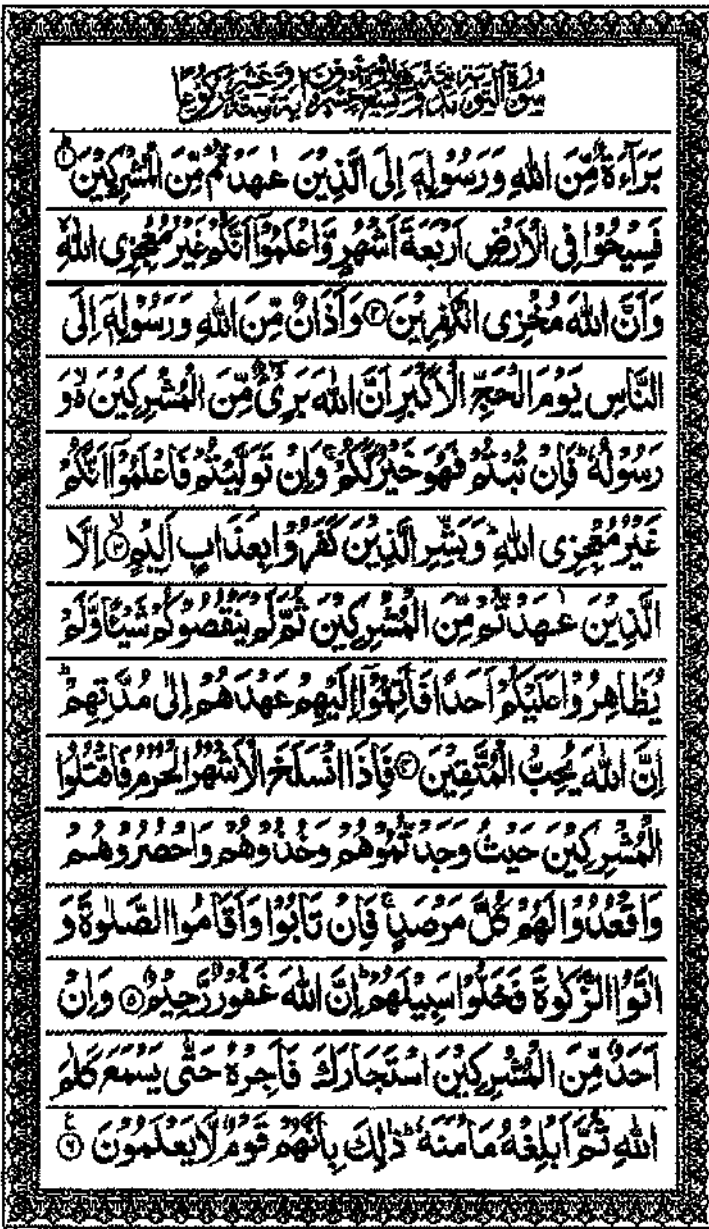 بَرَآءَةٌ مِّنَ اللّٰهِ وَرَسُوْلِهٖۤ اِلَى الَّذِيْنَ عٰهَدْتُّمْ مِّنَ الْمُشْرِكِيْنَ ؕ‏﴿۱﴾
فَسِيْحُوْا فِى الْاَرْضِ اَرْبَعَةَ اَشْهُرٍ وَّاعْلَمُوْۤا اَنَّكُمْ غَيْرُ مُعْجِزِى اللّٰهِ ۙ
وَاَنَّ اللّٰهَ مُخْزِى الْكٰفِرِيْنَ ﴿۲﴾ وَاَذَانٌ مِّنَ اللّٰهِ وَرَسُوْلِهٖۤ اِلَى
النَّاسِ يَوْمَ الْحَجِّ الْاَكْبَرِ اَنَّ اللّٰهَ بَرِىْٓءٌ مِّنَ الْمُشْرِكِيْنَ ۙ۬ وَ
رَسُوْلُهٗ ؕ فَاِنْ تُبْتُمْ فَهُوَ خَيْرٌ لَّكُمْ ۚ وَاِنْ تَوَلَّيْتُمْ فَاعْلَمُوْۤا اَنَّكُمْ
غَيْرُ مُعْجِزِى اللّٰهِ ؕ وَبَشِّرِ الَّذِيْنَ كَفَرُوْا بِعَذَابٍ اَلِيْمٍ ۙ﴿۳﴾ اِلَّا
الَّذِيْنَ عٰهَدْتُّمْ مِّنَ الْمُشْرِكِيْنَ ثُمَّ لَمْ يَنْقُصُوْكُمْ شَيْـًٔا وَّلَمْ
يُظَاهِرُوْا عَلَيْكُمْ اَحَدًا فَاَتِمُّوْۤا اِلَيْهِمْ عَهْدَهُمْ اِلٰى مُدَّتِهِمْ ؕ
اِنَّ اللّٰهَ يُحِبُّ الْمُتَّقِيْنَ ﴿۴﴾ فَاِذَا انْسَلَخَ الْاَشْهُرُ الْحُرُمُ فَاقْتُلُوا
الْمُشْرِكِيْنَ حَيْثُ وَجَدْتُّمُوْهُمْ وَخُذُوْهُمْ وَاحْصُرُوْهُمْ
وَاقْعُدُوْا لَهُمْ كُلَّ مَرْصَدٍ ۚ فَاِنْ تَابُوْا وَاَقَامُوا الصَّلٰوةَ وَ
اٰتَوُا الزَّكٰوةَ فَخَلُّوْا سَبِيْلَهُمْ ؕ اِنَّ اللّٰهَ غَفُوْرٌ رَّحِيْمٌ ﴿۵﴾ وَاِنْ
اَحَدٌ مِّنَ الْمُشْرِكِيْنَ اسْتَجَارَكَ فَاَجِرْهُ حَتّٰى يَسْمَعَ كَلٰمَ
اللّٰهِ ثُمَّ اَبْلِغْهُ مَاْمَنَهٗ ؕ ذٰلِكَ بِاَنَّهُمْ قَوْمٌ لَّا يَعْلَمُوْنَ ﴿۶﴾